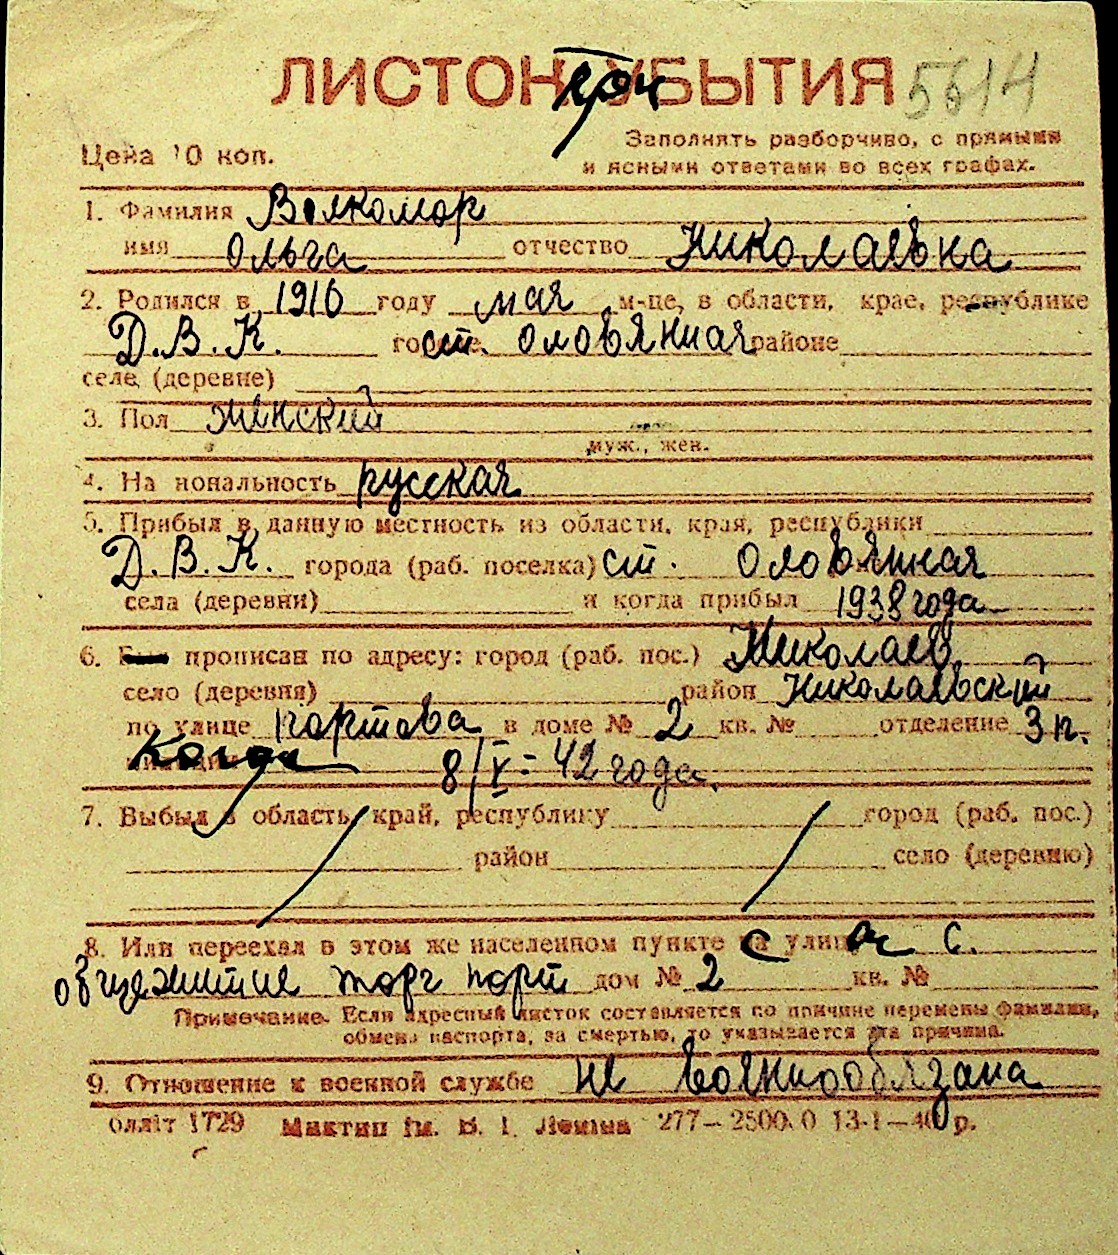 ЛИСТОК УБЫТИЯ 5614
Цена 10 коп.
Заполнять разборчиво, с прямыми
и ясными ответами во всех графах.
1. Фамилия Волкомор
имя Ольга отчество Николаевна
2. Родился в 1910 году мая м-це, в области, крае, республике
Д.В.К. ст. Оловянная районе
селе (деревне)
3. Пол женский
муж., жен.
4. Национальность русская
5. Прибыл в данную местность из области, края, республики
Д.В.К. города (раб. поселка) ст. Оловянная
села (деревни) и когда прибыл 1938 года
6. Был прописан по адресу: город (раб. пос.) Николаев
село (деревня) район Николаевский
по улице портова в доме № 2 кв. № отделение 3 п.
Когда 8/V-42 года.
7. Выбыл в область, край, республику город (раб. пос.)
район село (деревню)
8. Или переехал в этом же населенном пункте на улицу с.
общежитие торг порт дом № 2 кв. №
Примечание. Если адресный листок составляется по причине перемены фамилии,
обмена паспорта, за смертью, то указывается эта причина.
9. Отношение к военной службе не военнообязана
олліт 1729 Миктип ім. В. І. Леніна 277—2500.0 13-1—40 р.